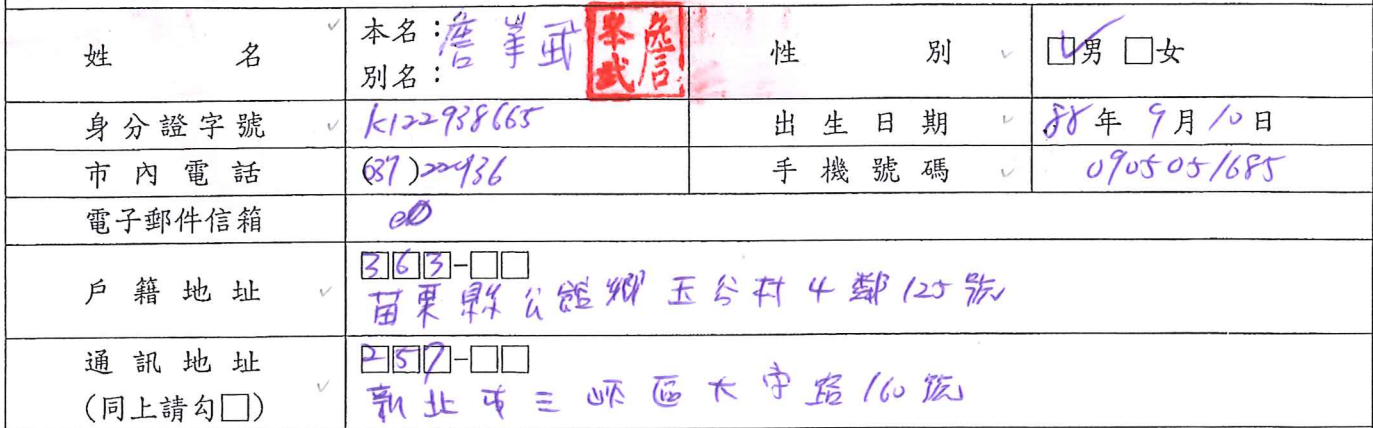 姓名 本名：詹峯武 峯武詹 性別 ☑男 □女
別名：
身分證字號 K122938665 出生日期 88年9月10日
市內電話 (037)22436 手機號碼 0905051685
電子郵件信箱
戶籍地址 363-□□
苗栗縣公館鄉玉谷村4鄰125號
通訊地址 257-□□
(同上請勾□) 新北市三峽區大 路160號